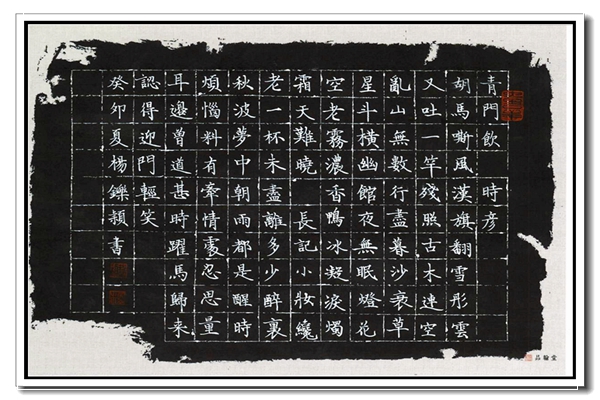 青門飲 時彦
胡馬嘶風漢旗翻雪彤雲
又吐一竿殘照古木連空
亂山無數行盡暮沙衰草
星斗橫幽館夜無眠燈花
空老霧濃香鴨冰凝淚燭
霜天難曉 長記小妝纔
老一杯未盡離多少醉裏
秋波夢中朝雨都是醒時
煩惱料有牽情處忍思量
耳邊曾道甚時躍馬歸來
認得迎門輕笑
癸卯夏楊鑠頴書
品翰堂